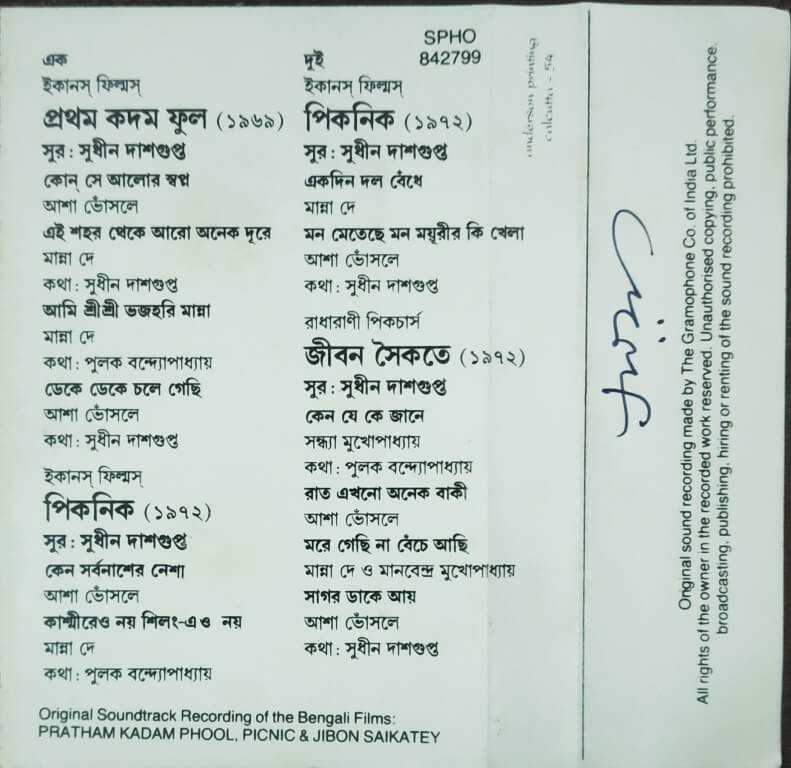 এক
ইকানস্ ফিল্মস্
প্রথম কদম ফুল (১৯৬৯)
সুর : সুধীন দাশগুপ্ত
কোন্ সে আলোর স্বপ্ন
আশা ভোঁসলে
এই শহর থেকে আরো অনেক দূরে
মান্না দে
কথা : সুধীন দাশগুপ্ত
আমি শ্রীশ্রী ভজহরি মান্না
মান্না দে
কথা : পুলক বন্দ্যোপাধ্যায়
ডেকে ডেকে চলে গেছি
আশা ভোঁসলে
কথা : সুধীন দাশগুপ্ত
ইকানস্ ফিল্মস্
পিকনিক (১৯৭২)
সুর : সুধীন দাশগুপ্ত
কেন সর্বনাশের নেশা
আশা ভোঁসলে
কাশ্মীরেও নয় শিলং-এও নয়
মান্না দে
কথা : পুলক বন্দ্যোপাধ্যায়
SPHO
842799
দুই
ইকানস্ ফিল্মস্
পিকনিক (১৯৭২)
সুর : সুধীন দাশগুপ্ত
একদিন দল বেঁধে
মান্না দে
মন মেতেছে মন ময়ূরীর কি খেলা
আশা ভোঁসলে
কথা : সুধীন দাশগুপ্ত
রাধারাণী পিকচার্স
জীবন সৈকতে (১৯৭২)
সুর : সুধীন দাশগুপ্ত
কেন যে কে জানে
সন্ধ্যা মুখোপাধ্যায়
কথা : পুলক বন্দ্যোপাধ্যায়
রাত এখনো অনেক বাকী
আশা ভোঁসলে
মরে গেছি না বেঁচে আছি
মান্না দে ও মানবেন্দ্র মুখোপাধ্যায়
সাগর ডাকে আয়
আশা ভোঁসলে
কথা : সুধীন দাশগুপ্ত
Original Soundtrack Recording of the Bengali Films:
PRATHAM KADAM PHOOL, PICNIC & JIBON SAIKATEY
anderson printing
calcutta - 54
Original sound recording made by The Gramophone Co. of India Ltd.
All rights of the owner in the recorded work reserved. Unauthorised copying, public performance,
broadcasting, publishing, hiring or renting of the sound recording prohibited.